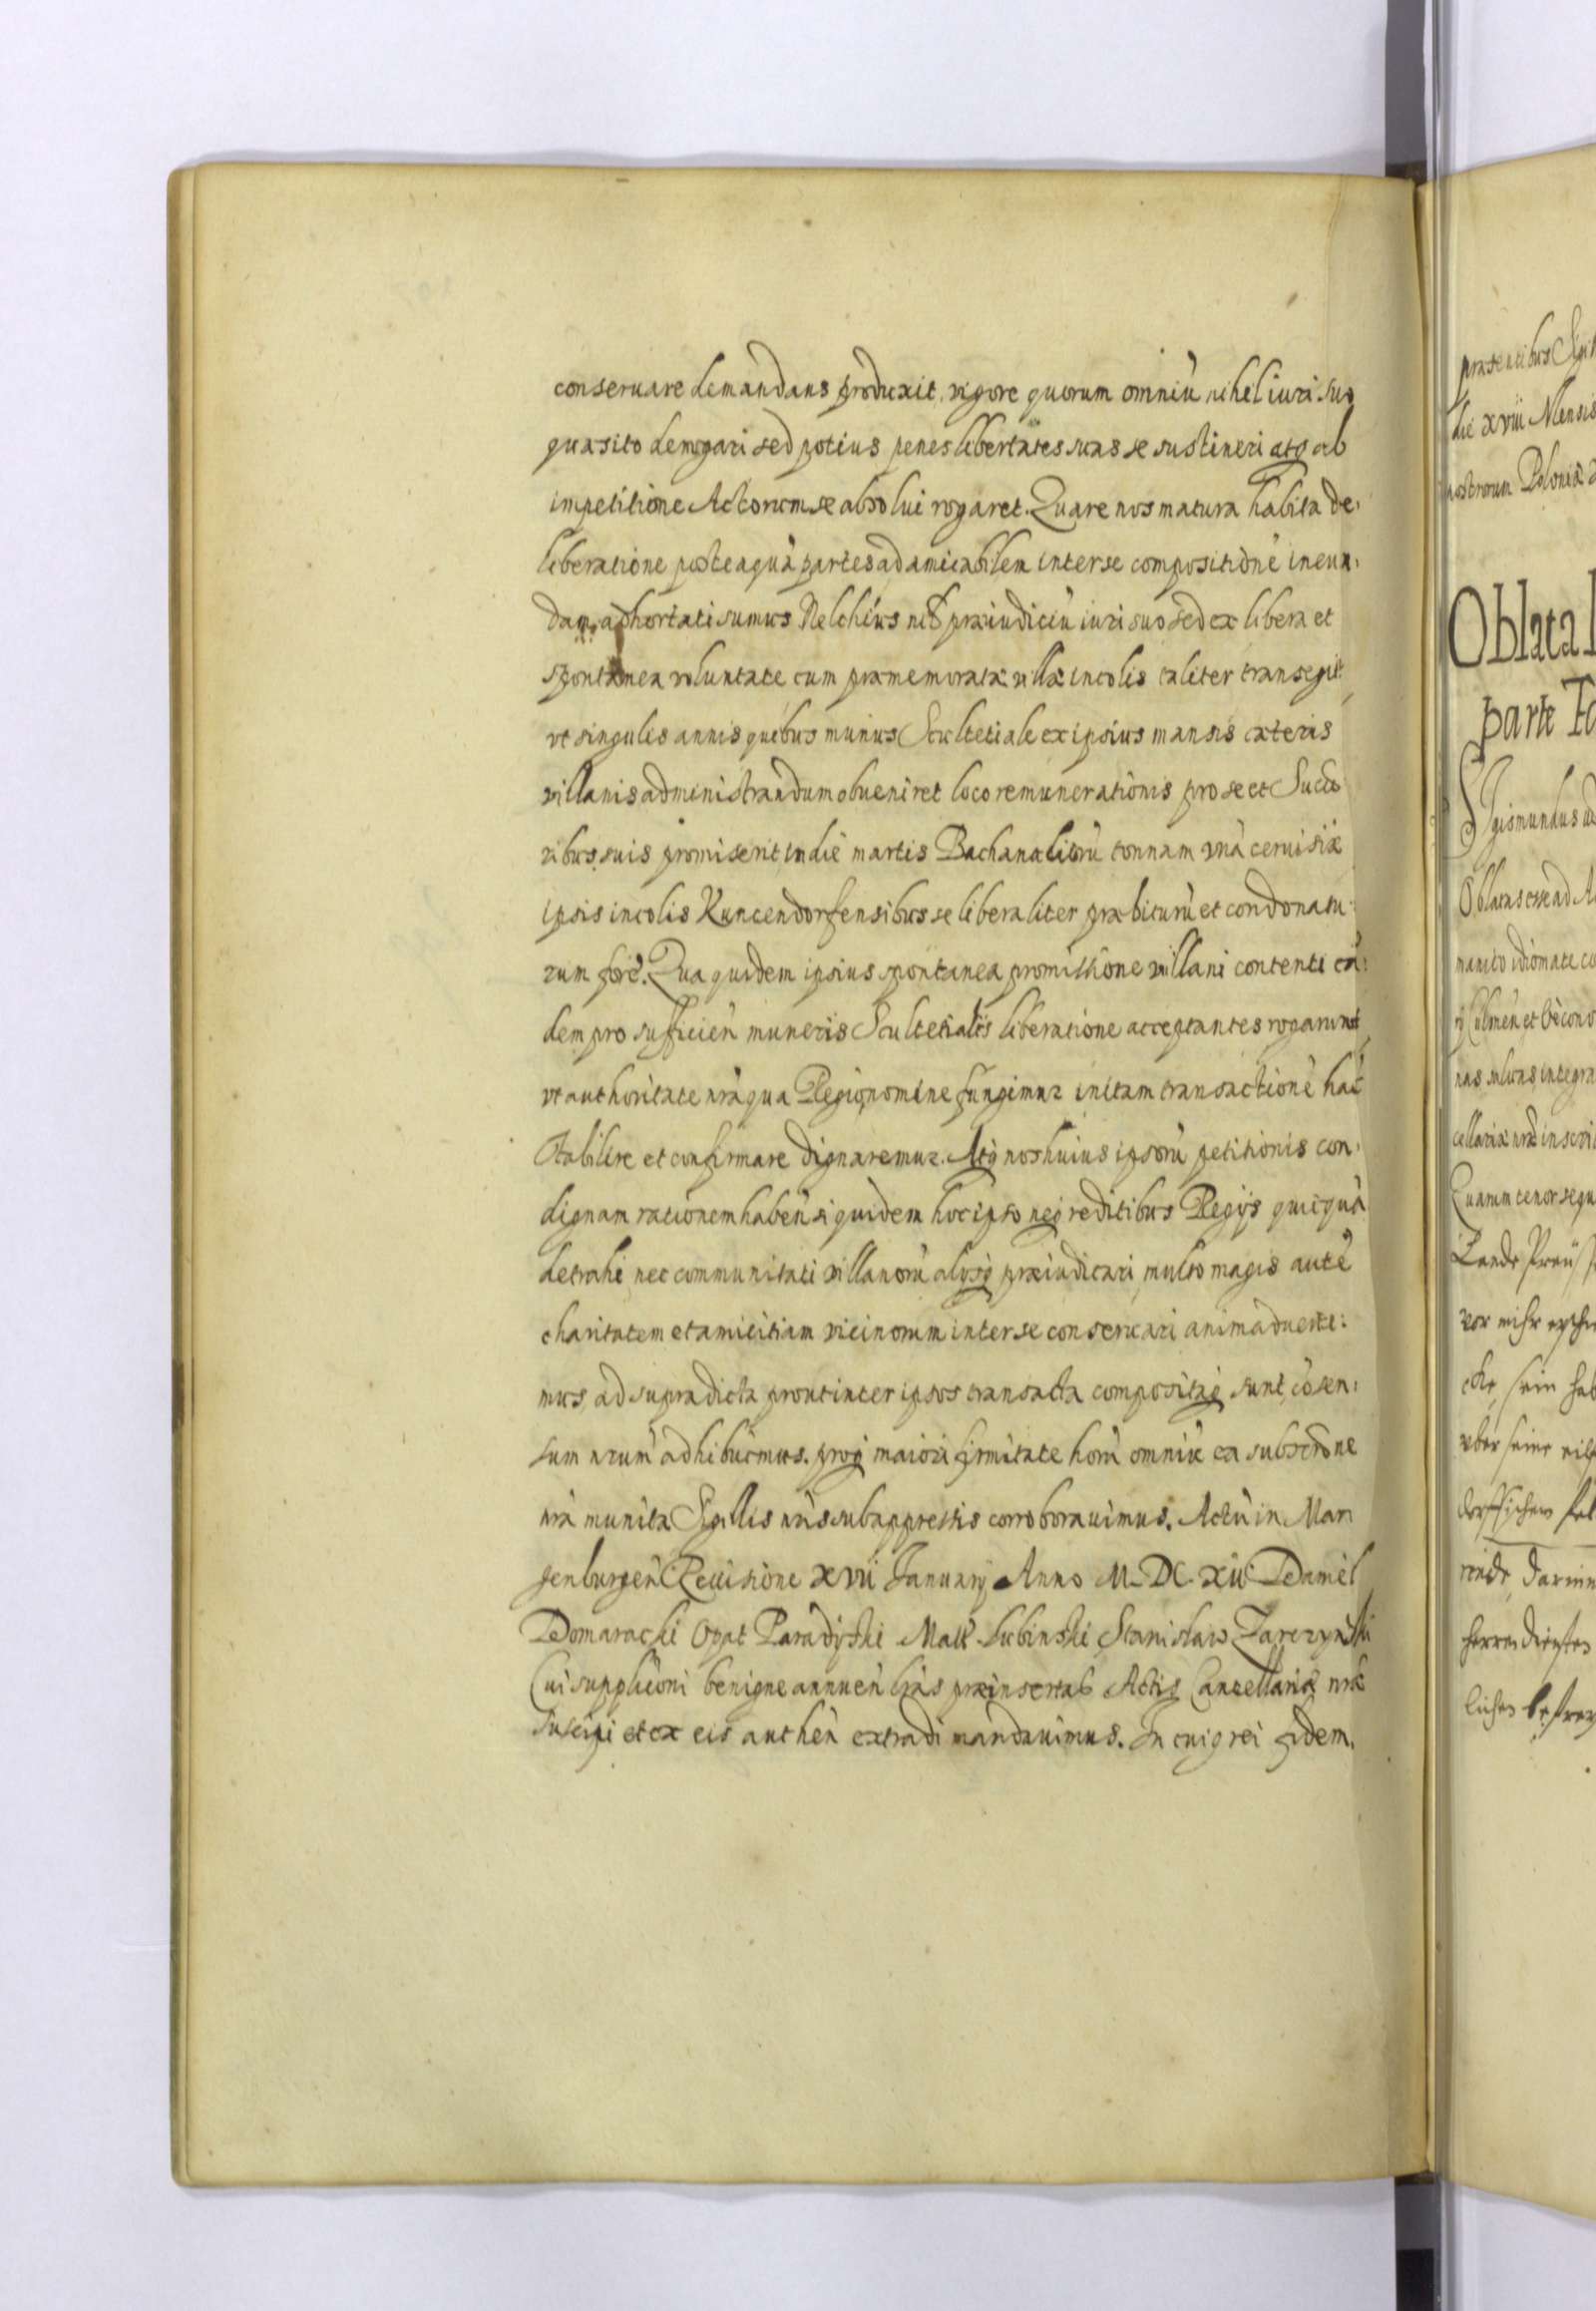 conseruare demandans produxit, vigore quorum omniũ nihil iuri suo
quæsito derogari sed potius penes libertates suas se sustineri atq ab
impetitione Actorum se absolui rogaret. Quare nos matura habita de:
liberatione posteaquã partes ad amicabilem inter se compositionẽ ineun:
dam adhortati sumus Nelchius nõ præiudiciũ iuri suo sed ex libera et
spontanea voluntate cum præmemoratæ villæ incolis taliter transegit
vt singulis annis quibus munus Scultetiale ex ipsius mansis cæteris
villanis administrandum obueniret loco remunerationis pro se et Succes
ribus suis promiserit, in die martis Bachanaliorũ tonnam vnã ceruisiæ
ipsis incolis Kuncendorfensibus se liberaliter præbiturũ et condonatu:
rum forè. Qua quidem ipsius spontanea promissione villani contenti eã:
dem pro sufficieñ muneris Scultetialis liberatione acceptantes rogarunt
vt authoritate nrã qua Regio nomine fungimur initam transactionẽ hãc
stabilire et confirmare dignaremur. Atq nos huius ipsorũ petitionis con:
dignam rationem habeñ siquidem hoc ipso neq reditibus Regijs quicquã
detrahi nec communitati villanorũ alijsq præiudicari, multo magis autẽ
charitatem et amicitiam vicinorum inter se conseruari animaduerti:
mus, ad supradicta prout inter ipsos transacta compositaq sunt, cõsen:
sum nrum adhibuimus. proq maiori firmitate horũ omniũ ea subscrõne
nrã munita Sigillis nris subappressis corroborauimus. Actũ in Mari
genburgeñ Reuisione XVII January Anno M. DC. XII Daniel
Domaracki Opat Paradyski Matt Lubinski Stanislaw Zarczynski
Cui supplicõni benigne annueñ lras præinsertas Actis Cancellariæ nræ
suscipi et ex eis autheñ extradi mandauimus. In cuiq rei fidem.
præsentibus Sigil
die XVIII Mensis
nostrorum Poloniæ
Oblata
parte
Sigismundus
Oblatas esse ad
manico idiomate
Culmeñ et
nas saluas integra
cellariæ nræ inscri
Quarum tenor sequ
Lande Preü